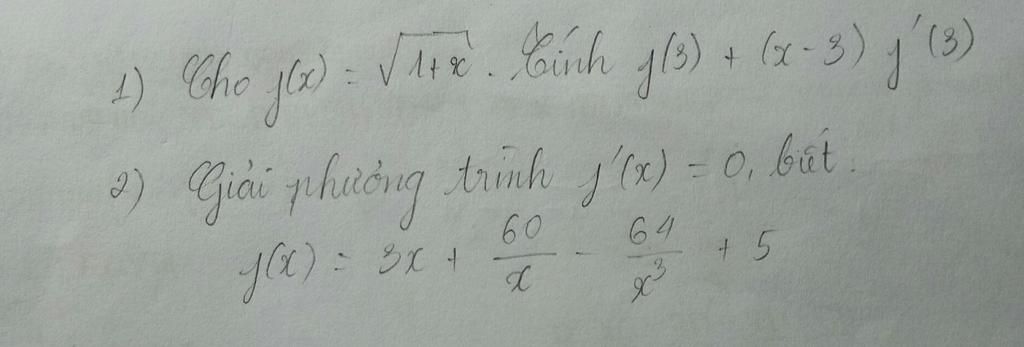 1) Cho f(x) = √1+x. Tính f(3) + (x-3) f'(3)
2) Giải phương trình f'(x) = 0, biết.
f(x) = 3x + 60/x - 64/x³ + 5